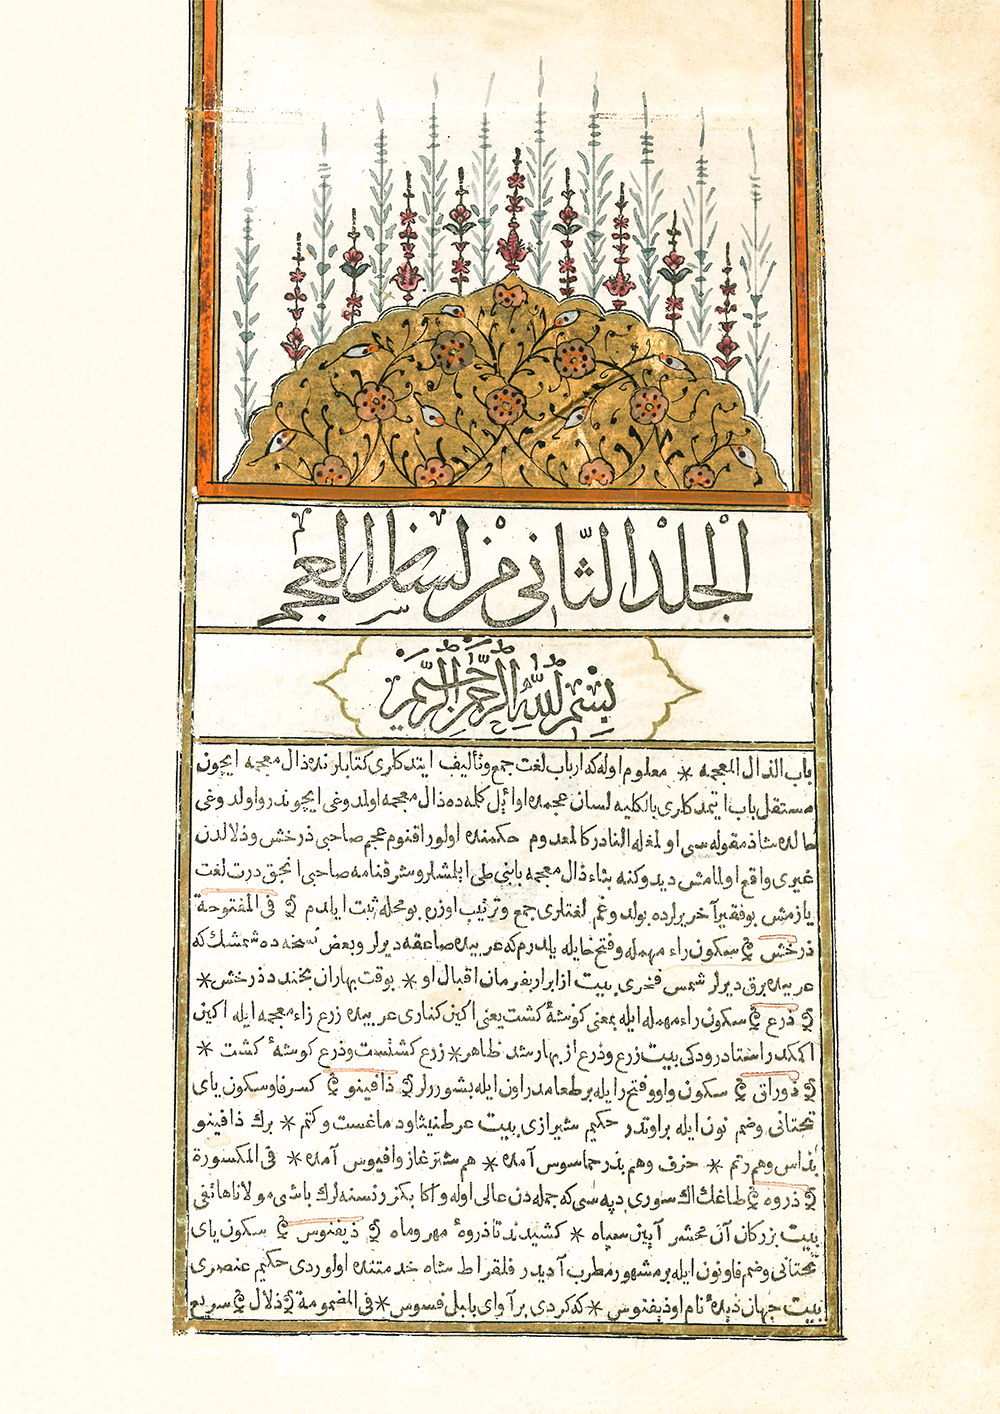 الجلد الثانى من لسان العجم
بسم الله الرحمن الرحيم
باب الذال المعجمه * معلوم اوله كه ارباب لغت جمع وتأليف ايتدكلرى كتابلرنده ذال معجمه ايچون
مستقل باب ايتمدكلرى بالكليه لسان عجمده اوائل كلمه ده ذال معجمه اولمدوغى ايچوندر واولدوغى
حالده شاذ مقوله سى اولمغله النادر كالمعدوم حكمنده اولور اقنوم عجم صاحبى ذرخش وذلالدن
غيرى واقع اولمامش ديدوكنه بناء ذال معجمه بابنى طى ايلمشلر وشرفنامه صاحبى انجق درت لغت
يازمش بو فقير آخر يرلرده بولدوغم لغتلرى جمع وترتيب اوزره بو محله ثبت ايلدم فى المفتوحة
ذرخش سكون راء مهمله وفتح خايله يلدرم كه عربيده صاعقه ديرلر وبعض نسخه ده شمشك كه
عربيده برق ديرلر شمس فخرى بيت از ابرار بفرمان اقبال او * بوقت بهاران بخندد ذرخش *
ذرع سكون راء مهمله ايله بمعنى كوشهٔ كشت يعنى اكين كنارى عربيده زرع زاء معجمه ايله اكين
اكمكدر استاد رودكى بيت زرع وذرع از بهار شد ظاهر * زرع كشتست وذرع كوشهٔ كشت *
ذوراق سكون واو وفتح رايله بر طعامدر اون ايله بشوررلر ذافينو كسر فا وسكون ياى
تحتانى وضم نون ايله براوتدر حكيم شيرازى بيت عرطنيثا ود ماغست وكتم * برك ذافينو
بذاس وهم رتم * حزف وهم بذر حماسوس آمده * هم شترغاز وافيوس آمده * فى المكسورة
ذروه طاغك اك سورى دپه سى كه جمله دن عالى اوله واكا بكزر نسنه لرك باشى مولانا هاتفى
بيت بزركان آن محشر آيين سپاه * كشيدند تا ذروهٔ مهر وماه ذيفنوس سكون ياى
تحتانى وضم فا ونون ايله بر مشهور مطرب آديدر فلقراط شاه خدمتنده اولوردى حكيم عنصرى
بيت جهان ديدهٔ نام او ذيفنوس * كه كردى بر آواى بلبل فسوس * فى المضمومة ذلال سريع